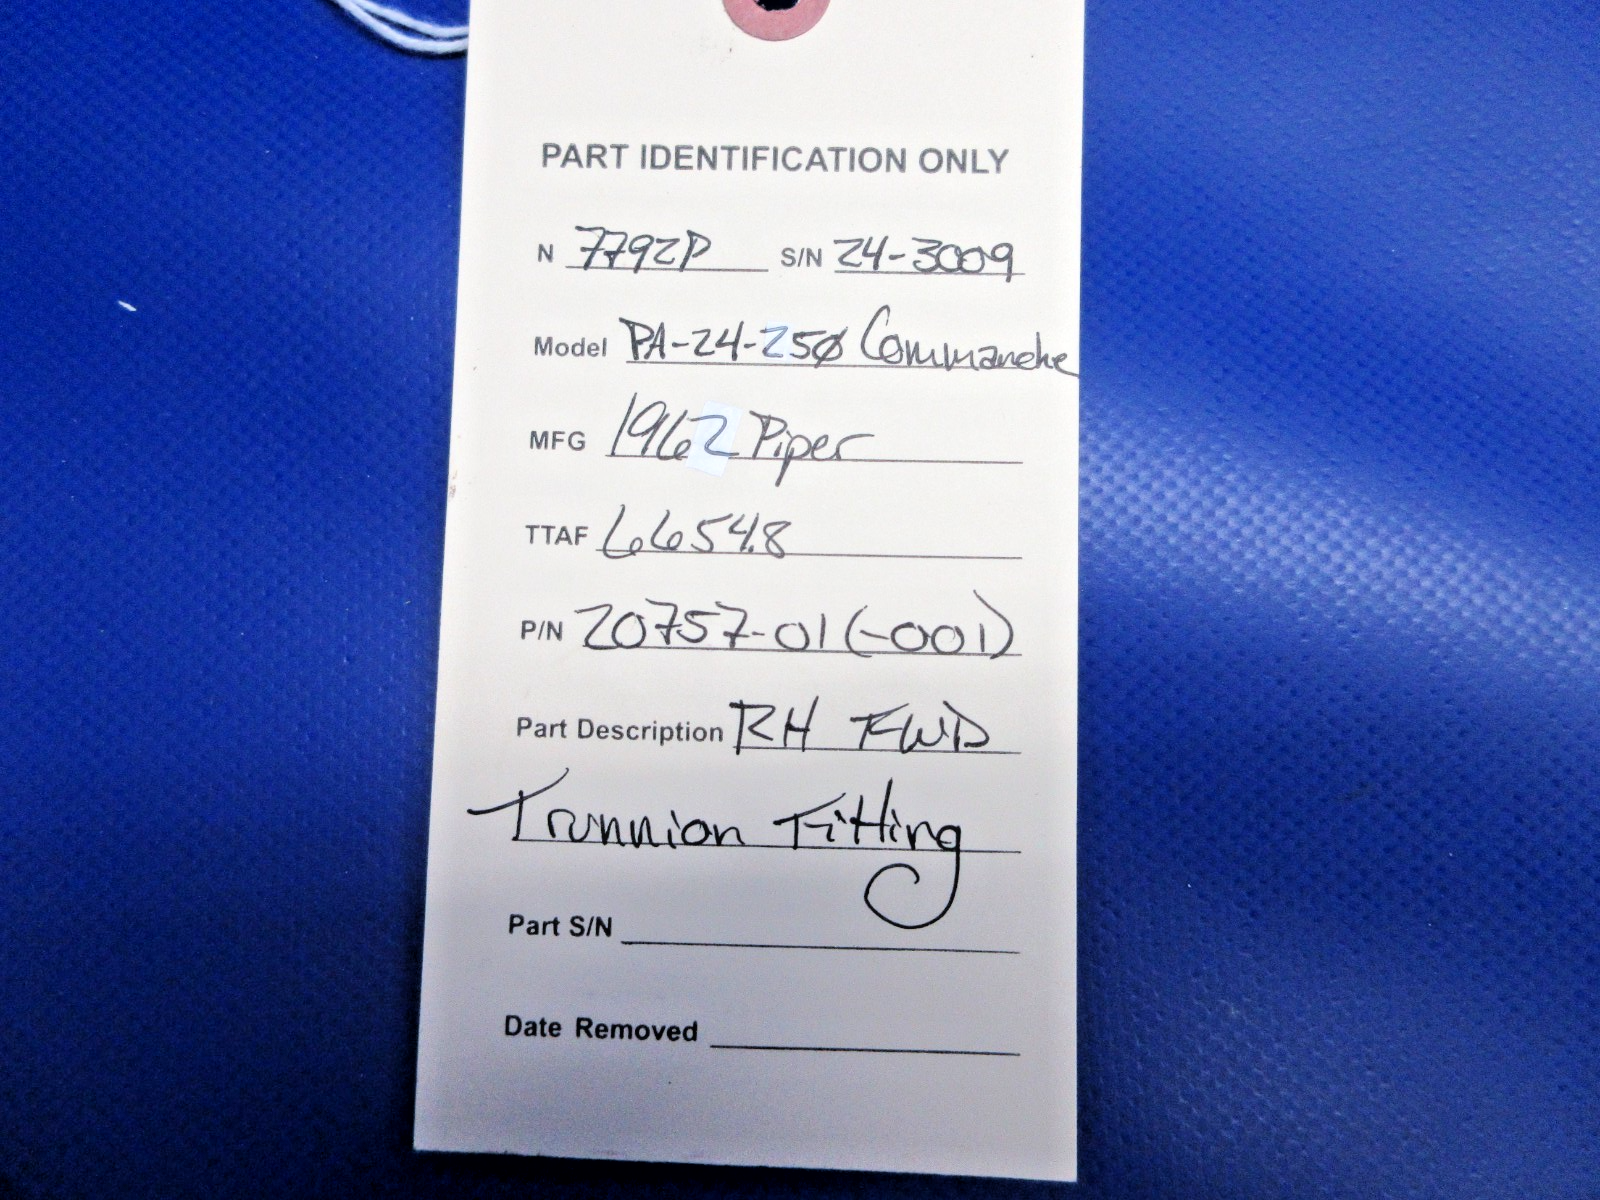 PART IDENTIFICATION ONLY
N 7792P S/N 24-3009
Model PA-24-250 Commanche
MFG 1962 Piper
TTAF 6654.8
P/N 20757-01 (-001)
Part Description RH FWD
Trunnion Fitting
Part S/N
Date Removed